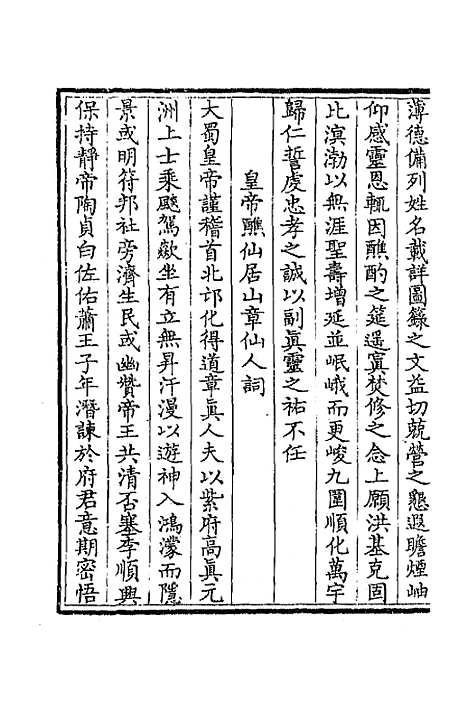 薄德備列姓名載詳圖籙之文益切兢營之懇遐瞻煙岫
仰感靈恩輒因醮酌之筵遥寘焚修之念上願洪基克固
比溟渤以無涯聖壽增延並岷峨而更峻九圍順化萬宇
歸仁誓虔忠孝之誠以副眞靈之祐不任
皇帝醮仙居山章仙人詞
大蜀皇帝謹稽首北邙化得道章眞人夫以紫府高眞元
洲上士乘飈駕歘坐有立無昇汗漫以遊神入鴻濛而隱
景或明符邦社旁濟生民或幽贊帝王共清否塞李順興
保持靜帝陶貞白佐佑蕭王子年潛諫於府君意期密悟